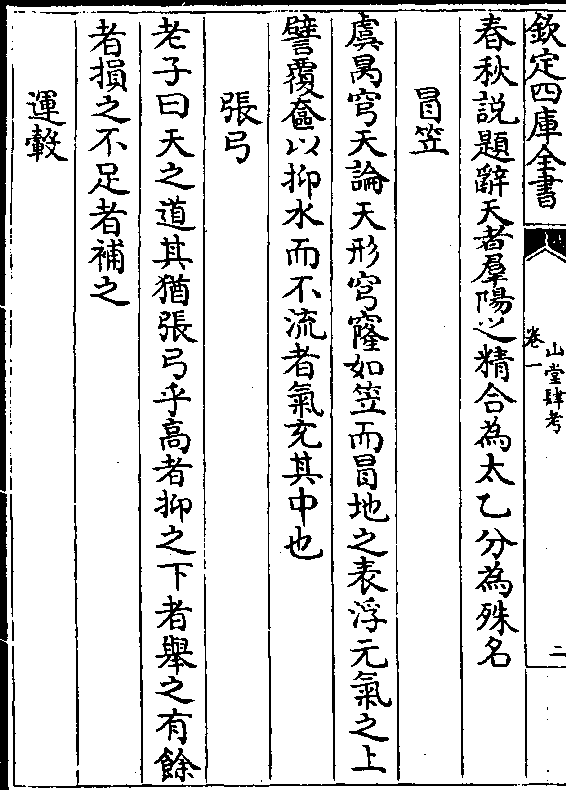 欽定四庫全書
山堂肆考
卷一
二
春秋説題辭天者羣陽之精合為太乙分為殊名
冒笠
虞昺穹天論天形穹窿如笠而冒地之表浮元氣之上
譬覆奩以抑水而不流者氣充其中也
張弓
老子曰天之道其猶張弓乎高者抑之下者舉之有餘
者損之不足者補之
運轂